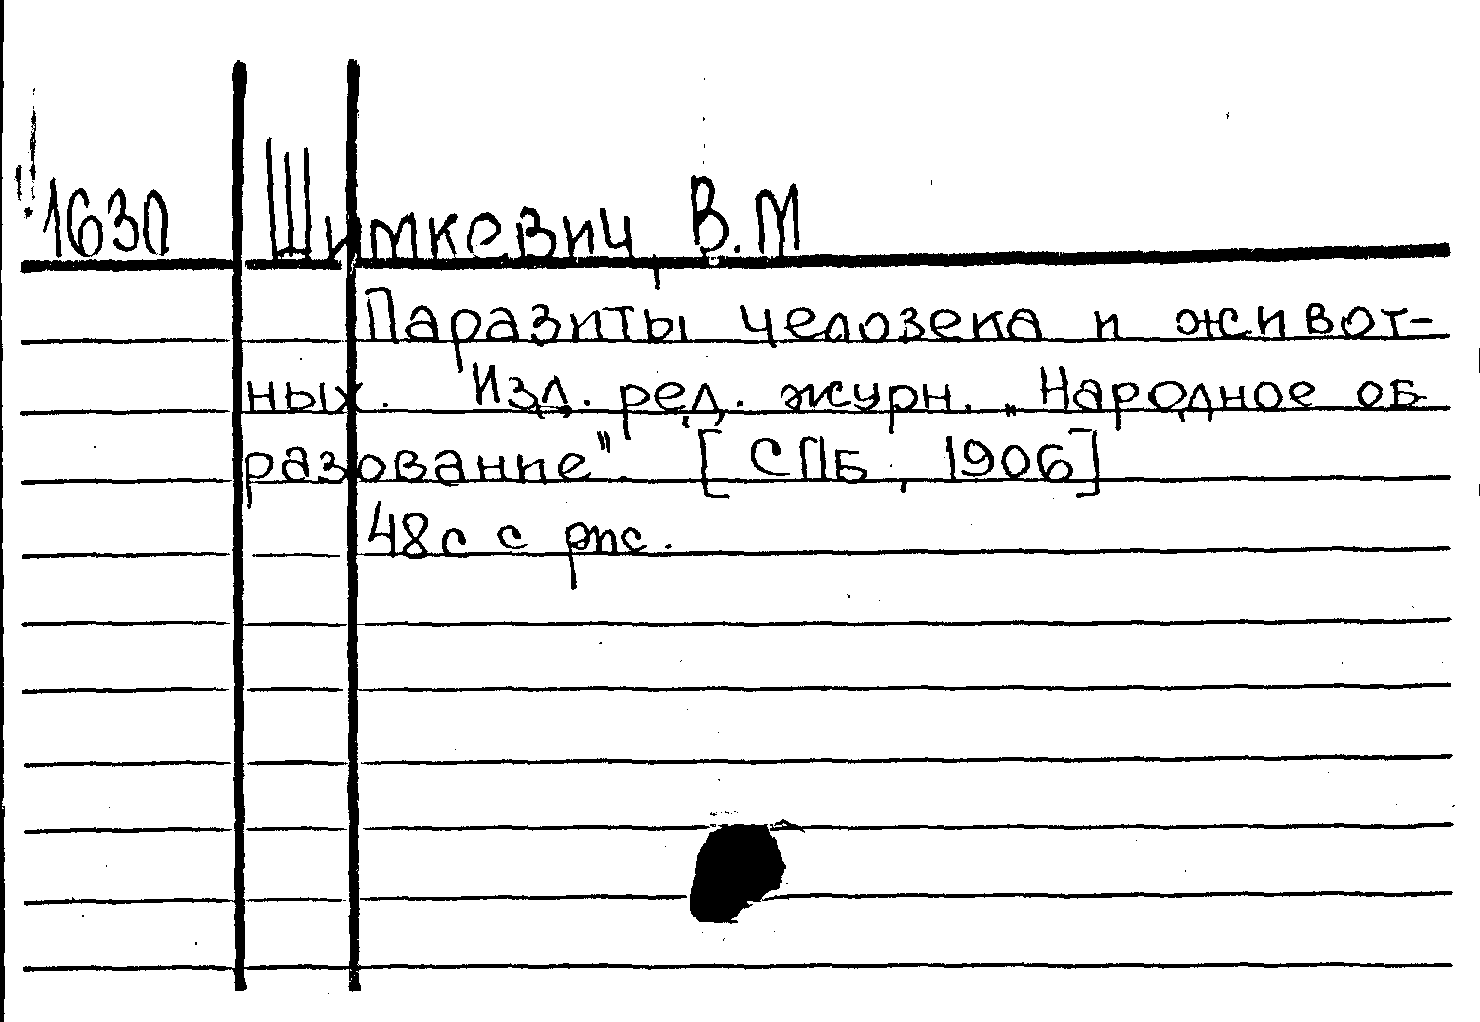 163л Шимкевич, В.М
Паразиты человека и живот-
ных. Изд. ред. журн. „Народное об
разование". [СПБ, 1906]
48с с рис.